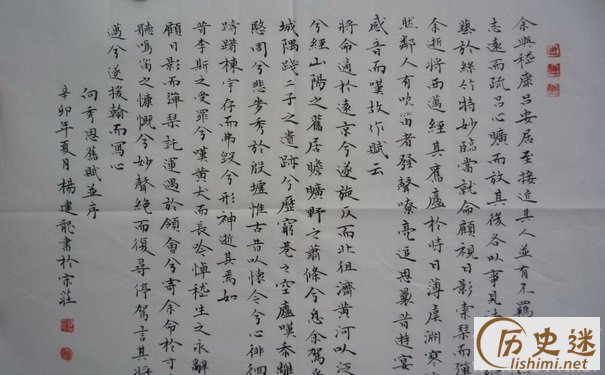 余與嵇康呂安居至接近其人並有不羈
志遠而疏呂心曠而放其後各以事見法
藝於絲竹特妙臨當就命顧視日影索琴而彈
余逝將西邁經其舊廬於時日薄虞淵寒
然鄰人有吹笛者發聲嘹亮追思曩昔遊宴
感音而嘆故作賦云
將命適於遠京兮遂旋反而北徂濟黃河以泛
兮經山陽之舊居瞻曠野之蕭條兮息余駕乎
城隅踐二子之遺跡兮歷窮巷之空廬嘆黍離
愍周兮悲麥秀於殷墟惟古昔以懷今兮心徘徊
躊躇棟宇存而弗毀兮形神逝其焉如
昔李斯之受罪兮嘆黃犬而長吟悼嵇生之永辭
顧日影而彈琴託運遇於領會兮寄余命於寸
聽鳴笛之慷慨兮妙聲絕而復尋停駕言其將
邁兮遂援翰而寫心
向秀思舊賦並序
辛卯年夏月楊建龍書於宗莊
历史迷
lishimi.net